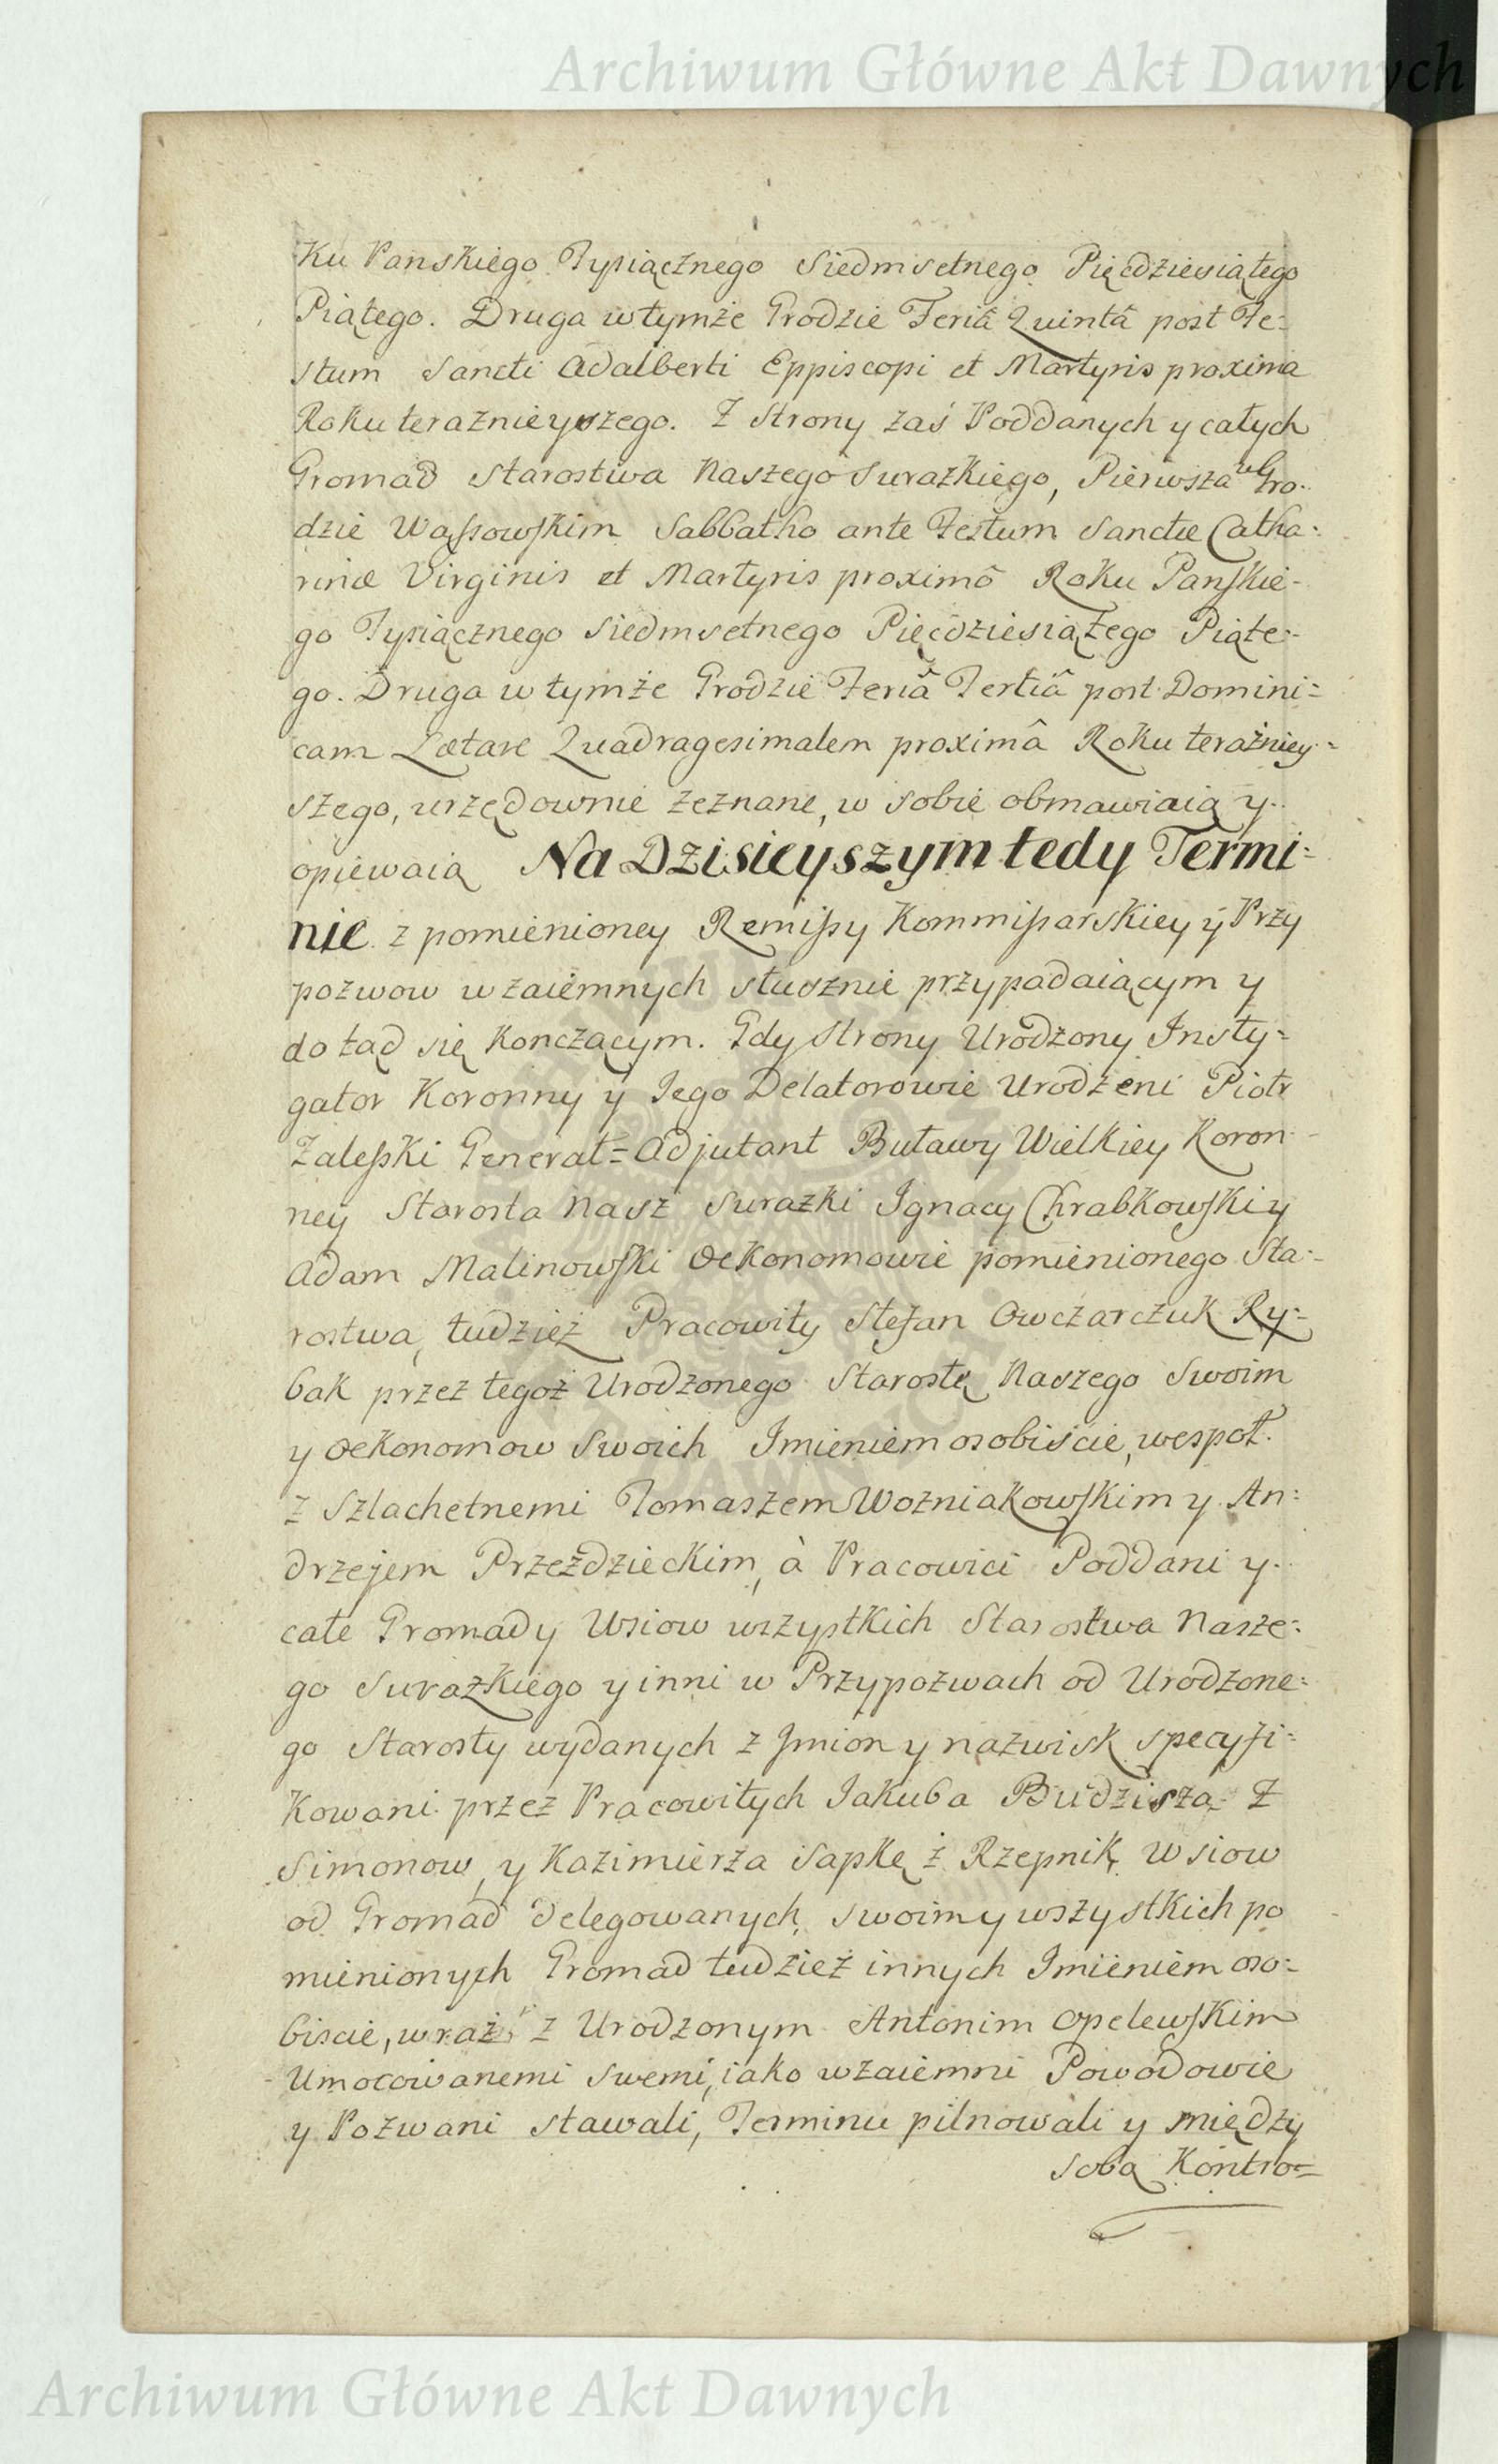 Archiwum Główne Akt Dawnych
Ku Panskiego Tysiącznego Siedmsetnego Pięćdziesiątego
Piątego. Druga w tymże Grodzie Feriâ Quintâ post Fe=
stum Sancti Adalberti Eppiscopi et Martyris proxima
Roku teraznieyszego. Z Strony zaś Poddanych y całych
Gromad Starostwa Naszego Surazkiego, Pierwsza w Gro=
dzie Wąssowskim Sabbatho ante Festum Sanctæ Catha=
rinæ Virginis et Martyris proximô Roku Panskie=
go Tysiącznego Siedmsetnego Pięćdziesiątego Piąte=
go. Druga w tymże Grodzie Feriâ Tertiâ post Domini=
cam Lætare Quadragesimalem proximâ Roku teraźniey=
szego, urzędownie zeznane, w sobie obmawiaią y
opiewaią Na Dzisieyszym tedy Termi=
nie z pomienioney Remissy Kommissarskiey y Przy
pozwow wzaiemnych słusznie przypadaiącym y
do tąd się Konczącym. Gdy Strony Urodzony Insty=
gator Koronny y Jego Delatorowie Urodzeni Piotr
Zalesski Generał=Adjutant Buławy Wielkiey Koron=
ney Starosta Nasz Surazki Ignacy Chrabkowski y
Adam Malinowski Oekonomowie pomienionego Sta=
rostwa, tudzież Pracowity Stefan Owczarczuk Ry=
bak przez tegoż Urodzonego Starostę Naszego Swoim
y Oekonomow Swoich Imieniem osobiście, wespoł
z Szlachetnemi Tomaszem Wozniakowskim y An=
drzejem Przeździeckim, à Pracowici Poddani y
całe Gromady Wsiow wszystkich Starostwa Nasze=
go Surazkiego y inni w Przypozwach od Urodzone=
go Starosty wydanych z Imion y nazwisk specyfi=
Kowani przez Pracowitych Jakuba Budzisza z
Simonow, y Kazimierza Sapkę z Rzepnik Wsiow
od Gromad delegowanych, swoim y wszystkich po
mienionych Gromad tudzież innych Imieniem oso=
biscie, wraz z Urodzonym Antonim Opelewskim
Umocowanemi swemi, iako wzaiemni Powodowie
y Pozwani stawali, Terminu pilnowali y między
sobą Kontro=
Archiwum Główne Akt Dawnych